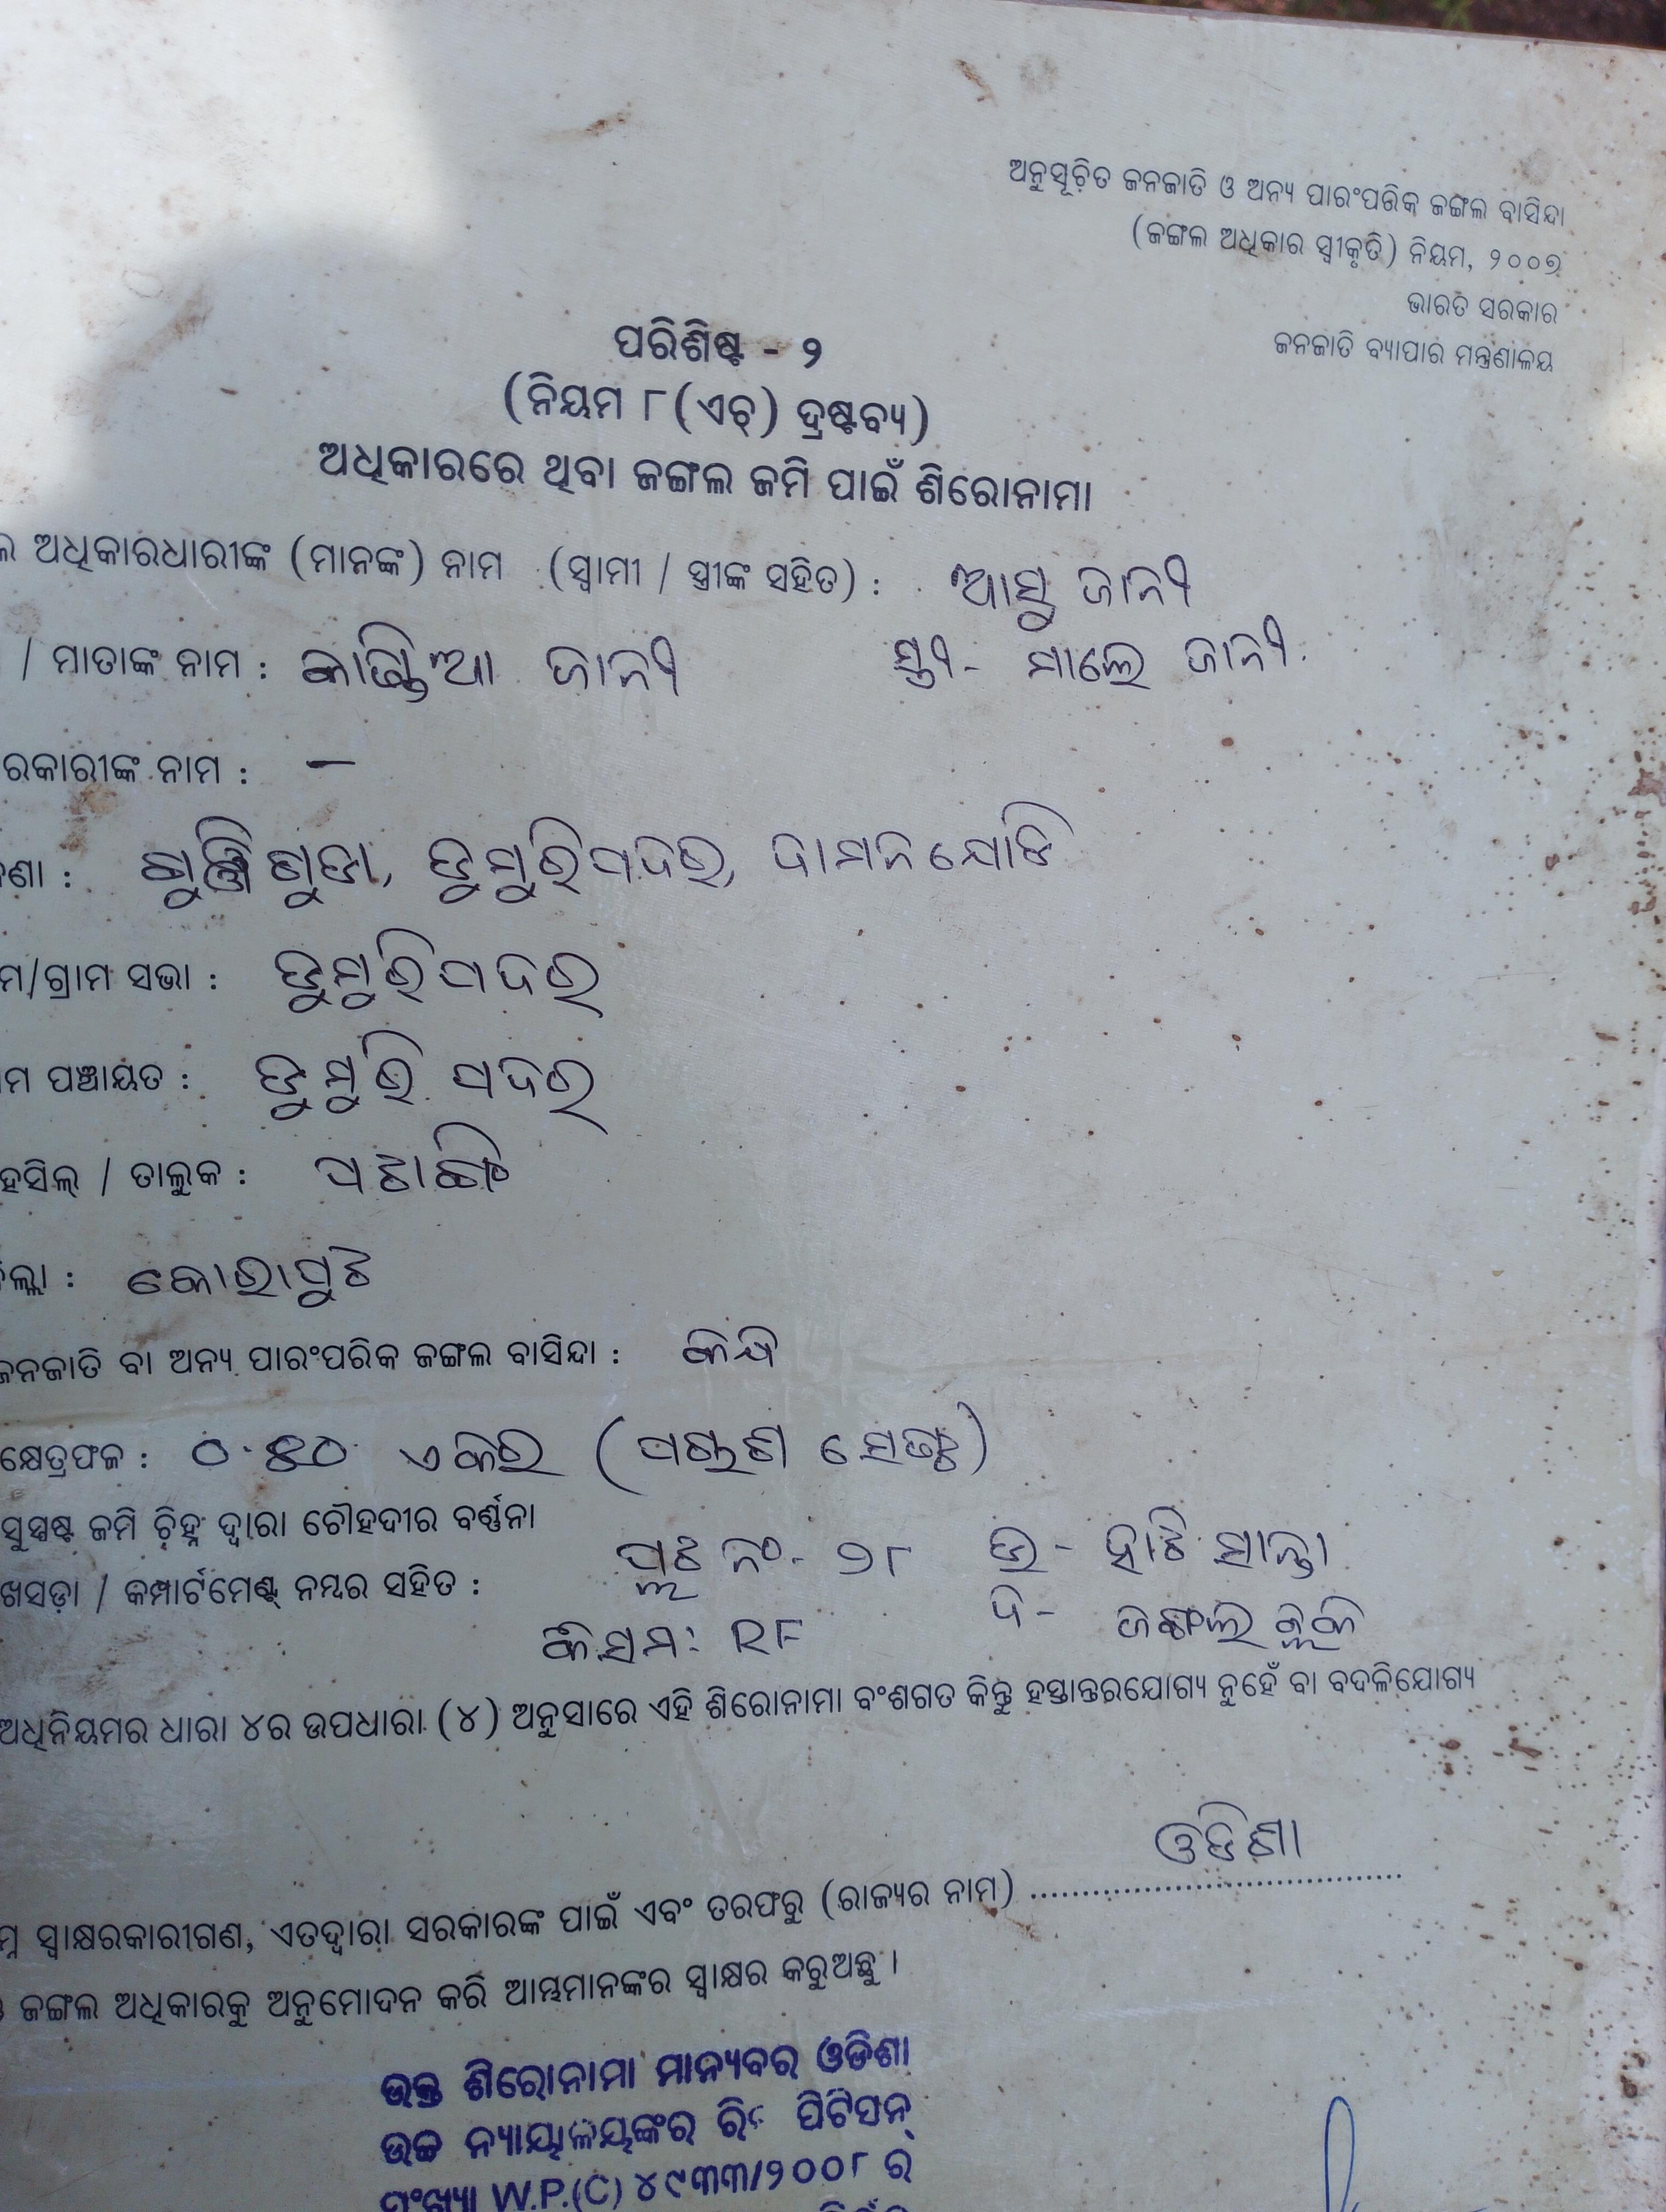 ଅନୁସୂଚିତ ଜନଜାତି ଓ ଅନ୍ୟ ପାରଂପରିକ ଜଙ୍ଗଲ ବାସିନ୍ଦା
(ଜଙ୍ଗଲ ଅଧିକାର ସ୍ୱୀକୃତି) ନିୟମ, ୨୦୦୭
ଭାରତ ସରକାର
ଜନଜାତି ବ୍ୟାପାର ମନ୍ତ୍ରଣାଳୟ
ପରିଶିଷ୍ଟ - ୨
(ନିୟମ ୮(ଏଚ୍) ଦ୍ରଷ୍ଟବ୍ୟ)
ଅଧିକାରରେ ଥିବା ଜଙ୍ଗଲ ଜମି ପାଇଁ ଶିରୋନାମା
ଅଧିକାରଧାରୀଙ୍କ (ମାନଙ୍କ) ନାମ (ସ୍ୱାମୀ / ସ୍ତ୍ରୀଙ୍କ ସହିତ) : ଜାନୀ
/ ମାତାଙ୍କ ନାମ : ଜାନୀ ସ୍ତ୍ରୀ- ମାଲେ ଜାନୀ
ରକାରୀଙ୍କ ନାମ : —
ଣା : ଗୁଞ୍ଜିଗୁଡା, ଡୁମୁରିପଦର, ଦାମନଯୋଡି
ମ/ଗ୍ରାମ ସଭା : ଡୁମୁରିପଦର
ମ ପଞ୍ଚାୟତ : ଡୁମୁରି ପଦର
ହସିଲ୍ / ତାଲୁକ : ପଟାଙ୍ଗି
ଲ୍ଲା : କୋରାପୁଟ
ଜନଜାତି ବା ଅନ୍ୟ ପାରଂପରିକ ଜଙ୍ଗଲ ବାସିନ୍ଦା : କନ୍ଧ
କ୍ଷେତ୍ରଫଳ : ୦.୫୦ ଏକର (ପଚାଶ ସେଣ୍ଟ)
ସୁସ୍ପଷ୍ଟ ଜମି ଚିହ୍ନ ଦ୍ୱାରା ଚୌହଦୀର ବର୍ଣ୍ଣନା
ଖସଡ଼ା / କମ୍ପାର୍ଟମେଣ୍ଟ୍ ନମ୍ବର ସହିତ : ପ୍ଲଟ ନଂ- ୨୮ ଉ - ହାଟି ସାନ୍ତା
କିସମ: RF ଦ- ଜଙ୍ଗଲ
ଅଧିନିୟମର ଧାରା ୪ର ଉପଧାରା (୪) ଅନୁସାରେ ଏହି ଶିରୋନାମା ବଂଶଗତ କିନ୍ତୁ ହସ୍ତାନ୍ତରଯୋଗ୍ୟ ନୁହେଁ ବା ବଦଳିଯୋଗ୍ୟ
ଓଡିଶା
ମ୍ନ ସ୍ୱାକ୍ଷରକାରୀଗଣ, ଏତଦ୍ୱାରା ସରକାରଙ୍କ ପାଇଁ ଏବଂ ତରଫରୁ (ରାଜ୍ୟର ନାମ) ....................................
ଜଙ୍ଗଲ ଅଧିକାରକୁ ଅନୁମୋଦନ କରି ଆମ୍ଭମାନଙ୍କର ସ୍ୱାକ୍ଷର କରୁଅଛୁ ।
ଉକ୍ତ ଶିରୋନାମା ମାନ୍ୟବର ଓଡିଶା
ଉଚ୍ଚ ନ୍ୟାୟାଳୟଙ୍କର ରିଟ ପିଟିସନ୍
ସଂଖ୍ୟା W.P.(C) ୪୯୩୩/୨୦୦୮ ର